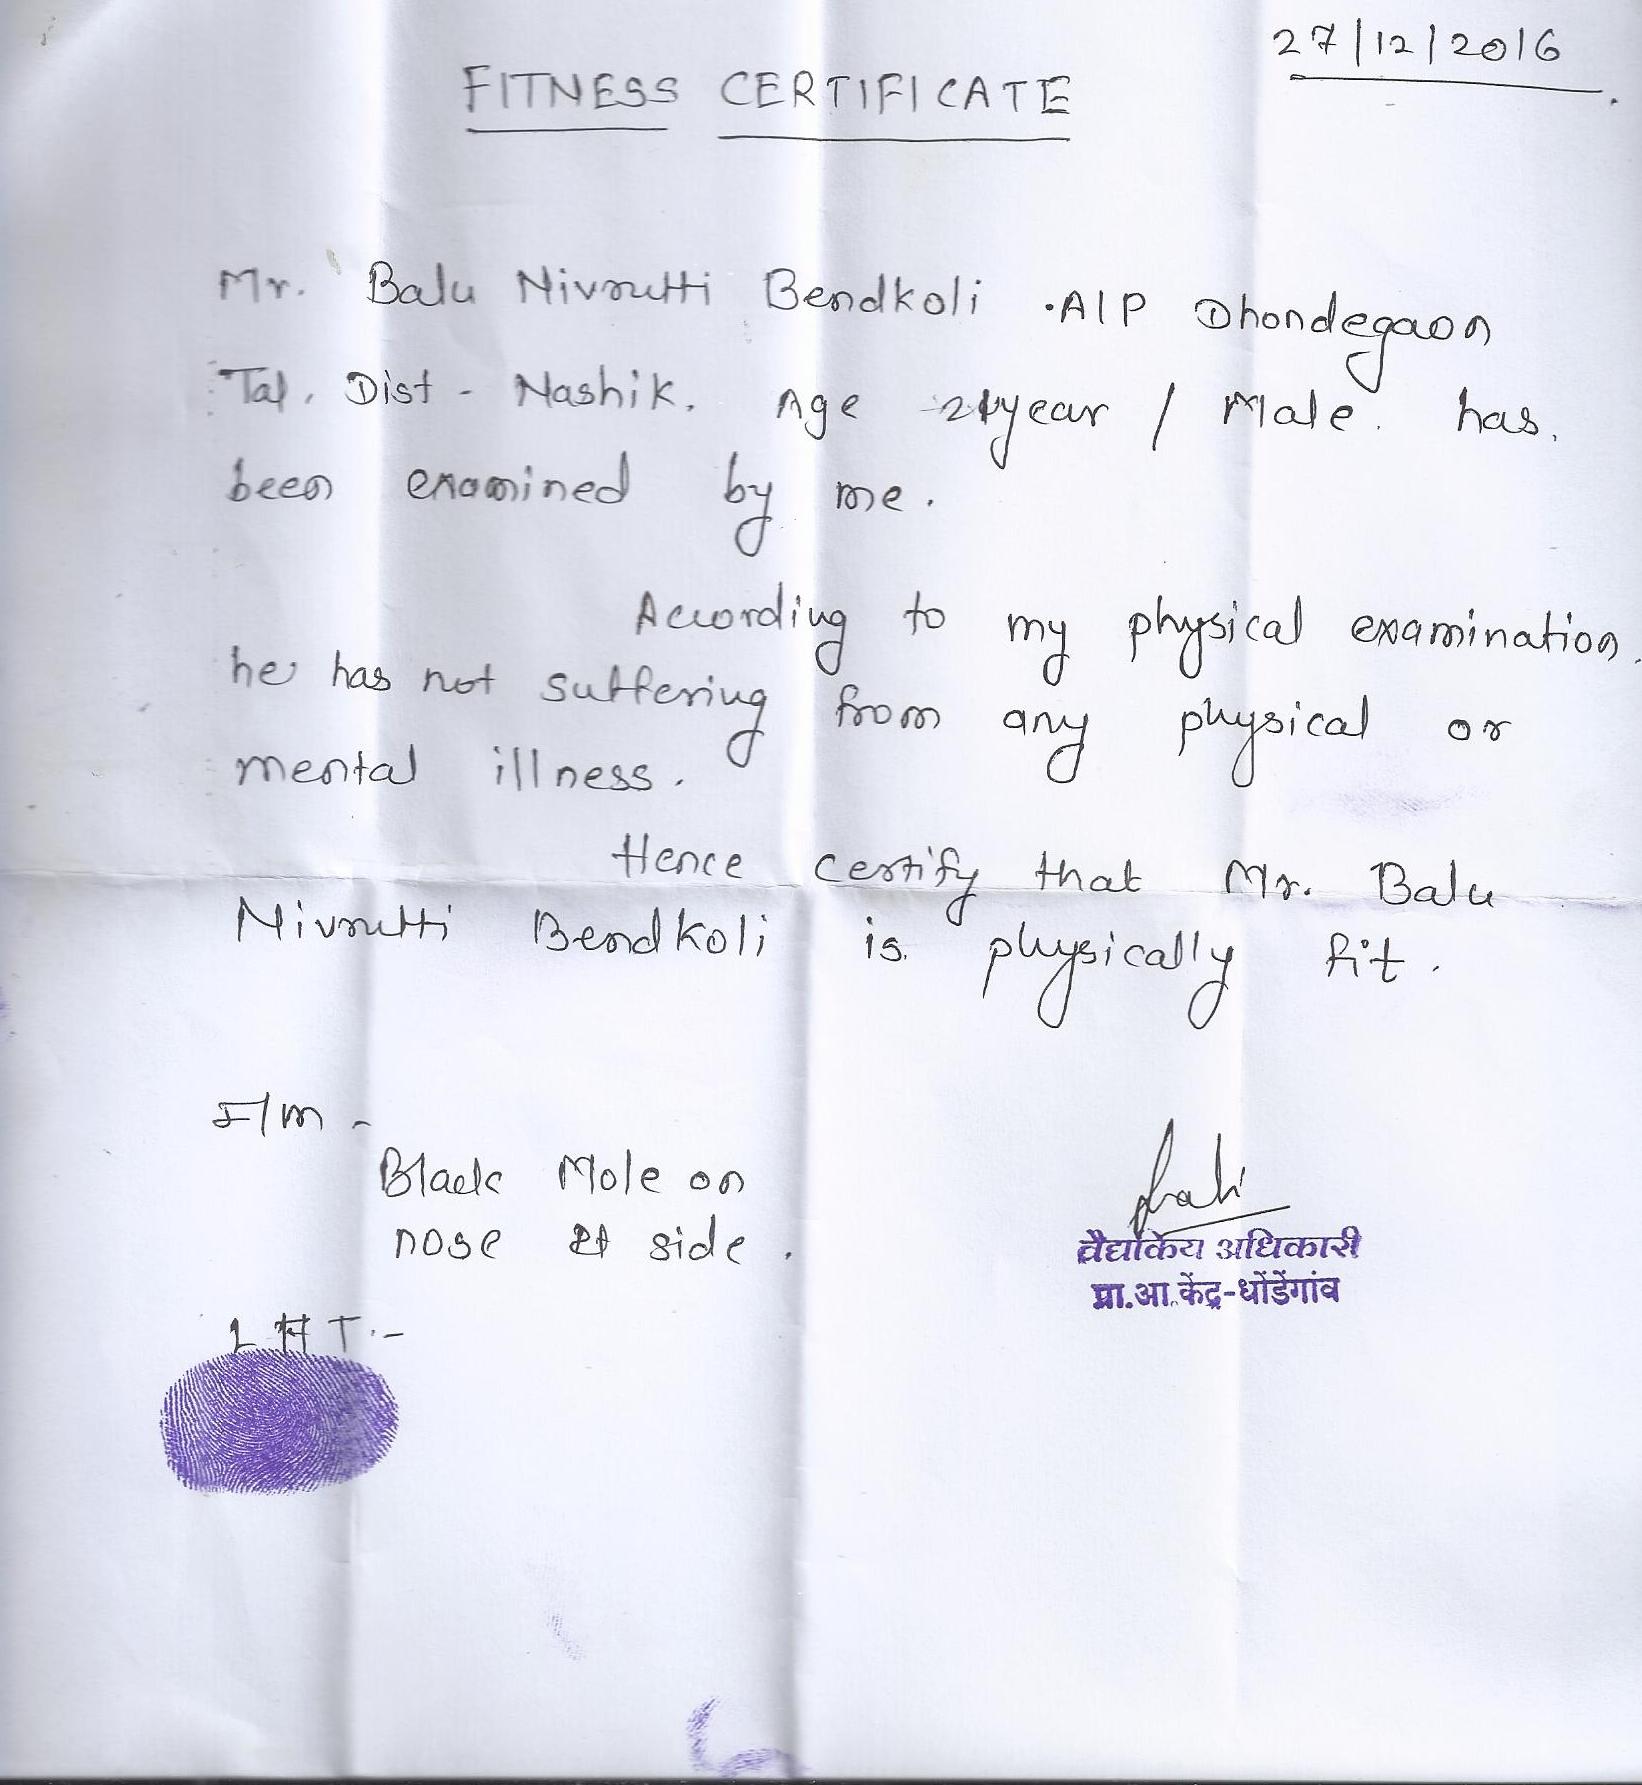 27/12/2016
FITNESS CERTIFICATE
Mr. Balu Nivrutti Bendkoli . A/P Dhondegaon
Tal. Dist - Nashik. Age 21year / Male. has.
been examined by me.
According to my physical examination.
he has not suffering from any physical or
mental illness.
Hence certify that Mr. Balu
Nivrutti Bendkoli is physically fit.
I/m -
Black Mole on
nose side.
L H T :-
वैद्यकिय अधिकारी
प्रा.आ.केंद्र-धोंडेंगांव